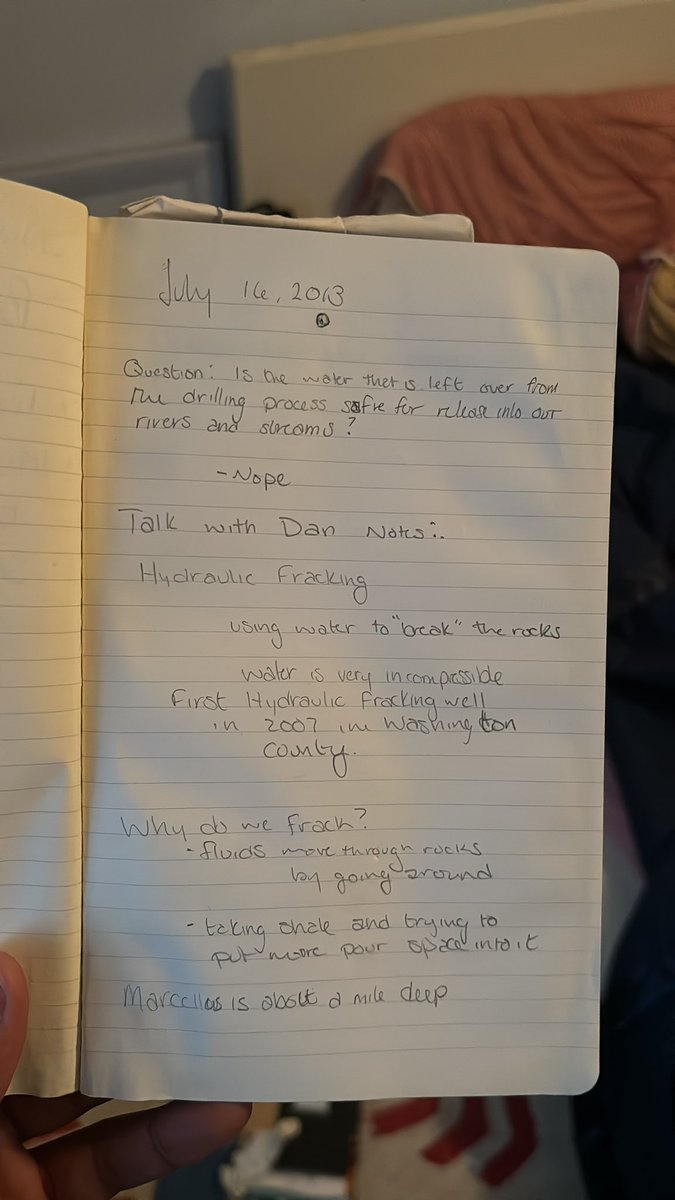 July 16, 2013
Question: Is the water that is left over from
the drilling process safe for release into our
rivers and streams?
-Nope
Talk with Dan Notes:.
Hydraulic Fracking
using water to "break" the rocks
water is very incompassible
First Hydraulic Fracking well
in 2007 in Washington
County.
Why do we frack?
- fluids move through rocks
by going around
- taking shale and trying to
put more pour space into it
Marcellas is about a mile deep